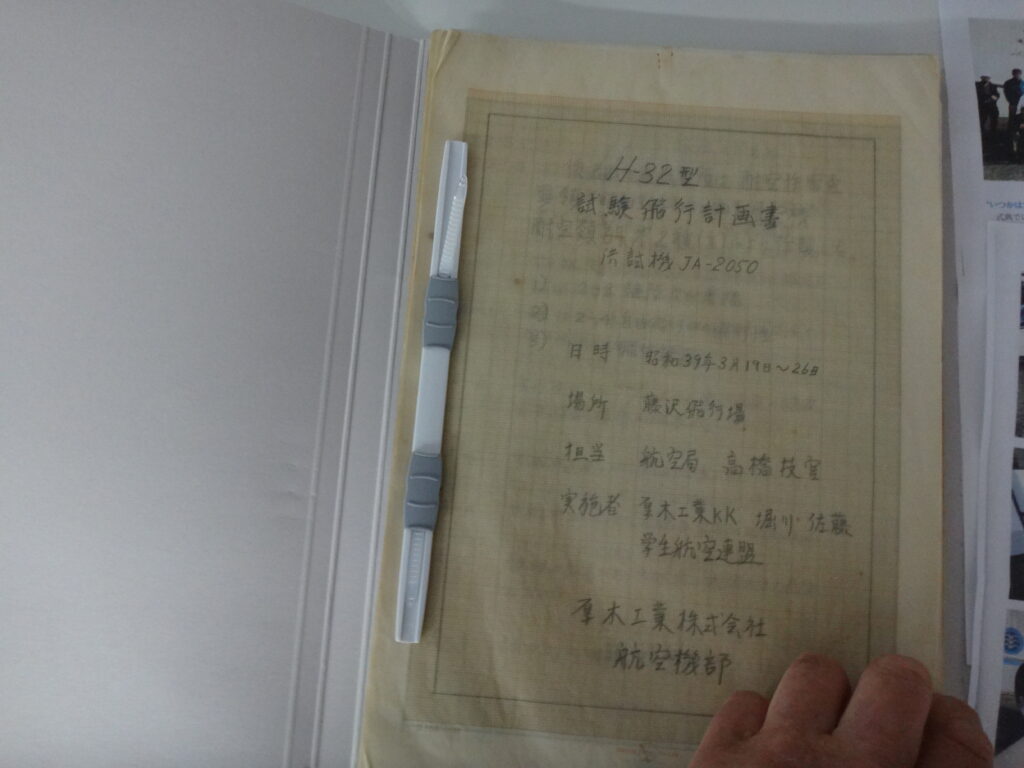 H-32型
試験飛行計画書
供試機 JA-2050
日時 昭和39年3月19日～26日
場所 藤沢飛行場
担当 航空局 高橋技官
実施者 厚木工業KK 堀川・佐藤
学生航空連盟
厚木工業株式会社
航空機部
1)
2)
3)
"いつかは